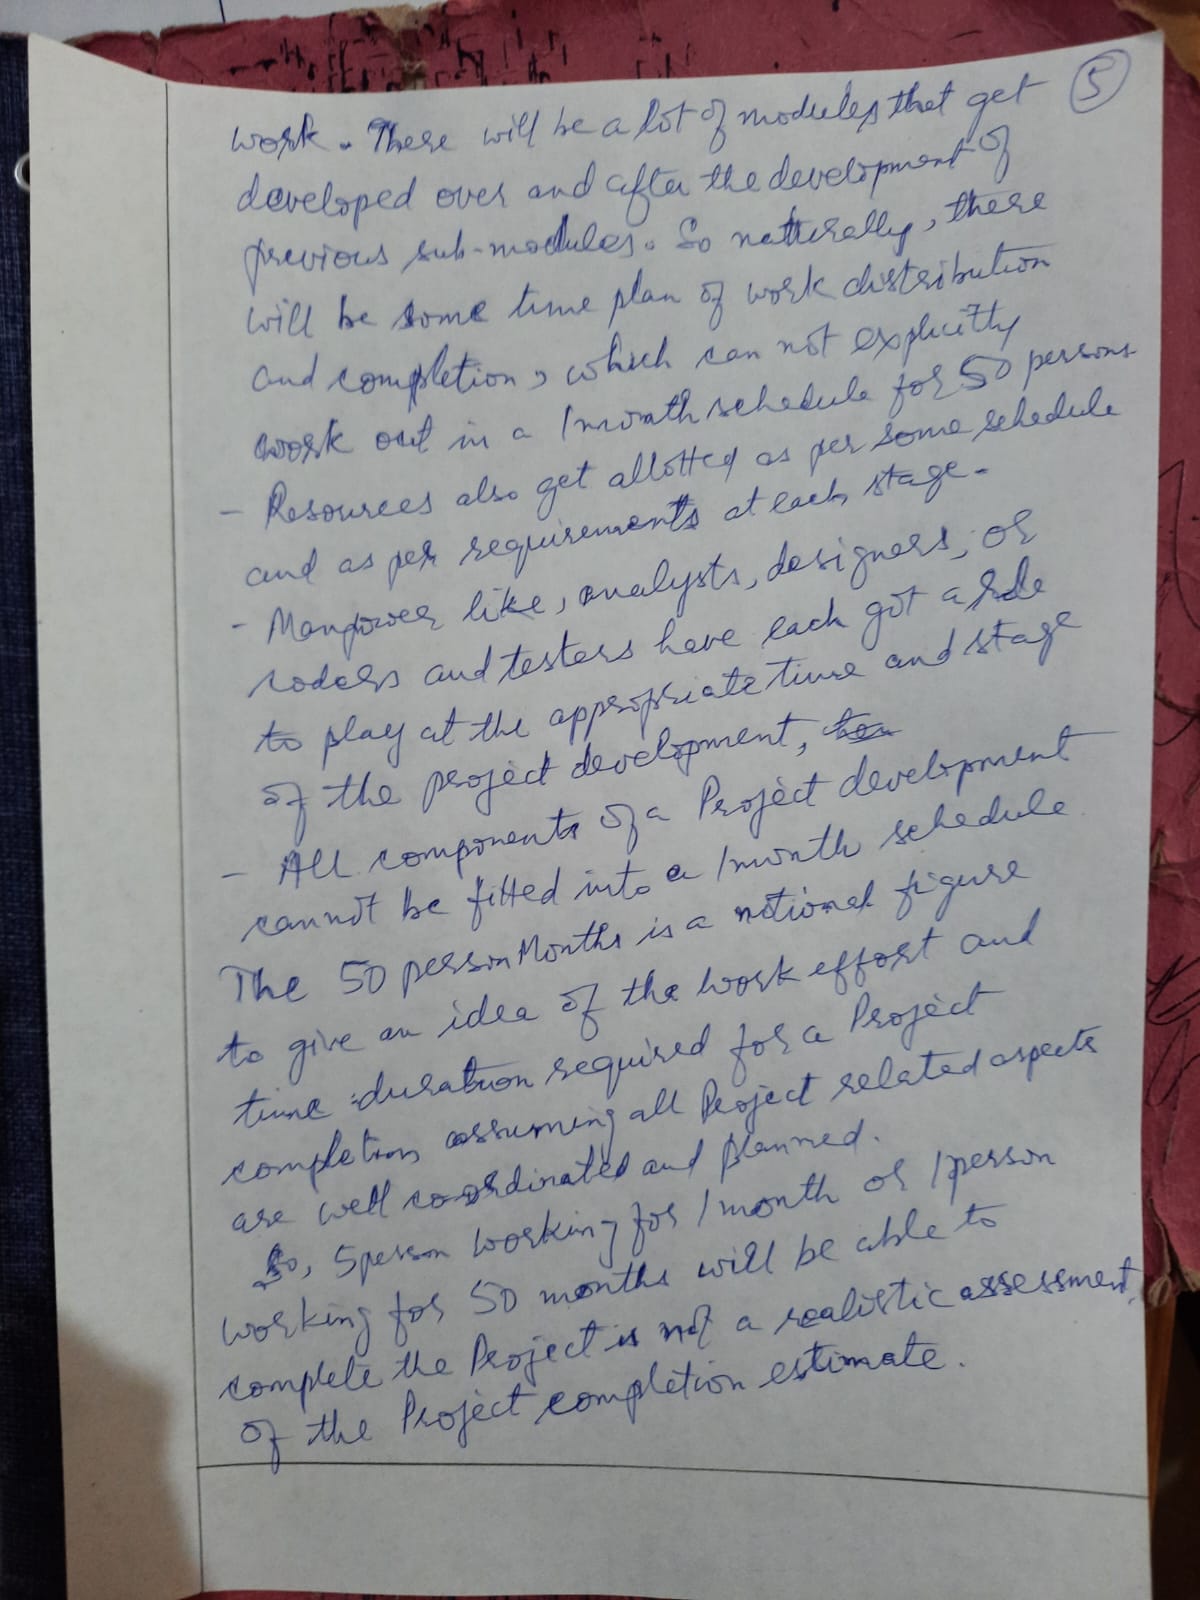 5
work. There will be a lot of modules that get
developed over and after the development of
previous sub-modules. So natturally, there
will be some time plan of work distribution
and completion, which can not explicitly
work out in a 1 month schedule for 50 persons
- Resources also get allotted as per some schedule
and as per requirements at each stage.
- Manpower like, analysts, designers, or
coders and testers have each got a role
to play at the appropriate time and stage
of the project development,
- All components of a Project development
cannot be fitted into a 1 month schedule
The 50 person Months is a notional figure
to give an idea of the work effort and
time duration required for a Project
completion assuming all Project related aspects
are well co-ordinated and planned.
So, 5 person working for 1 month or 1 person
working for 50 months will be able to
complete the Project is not a realistic assessment,
of the Project completion estimate.